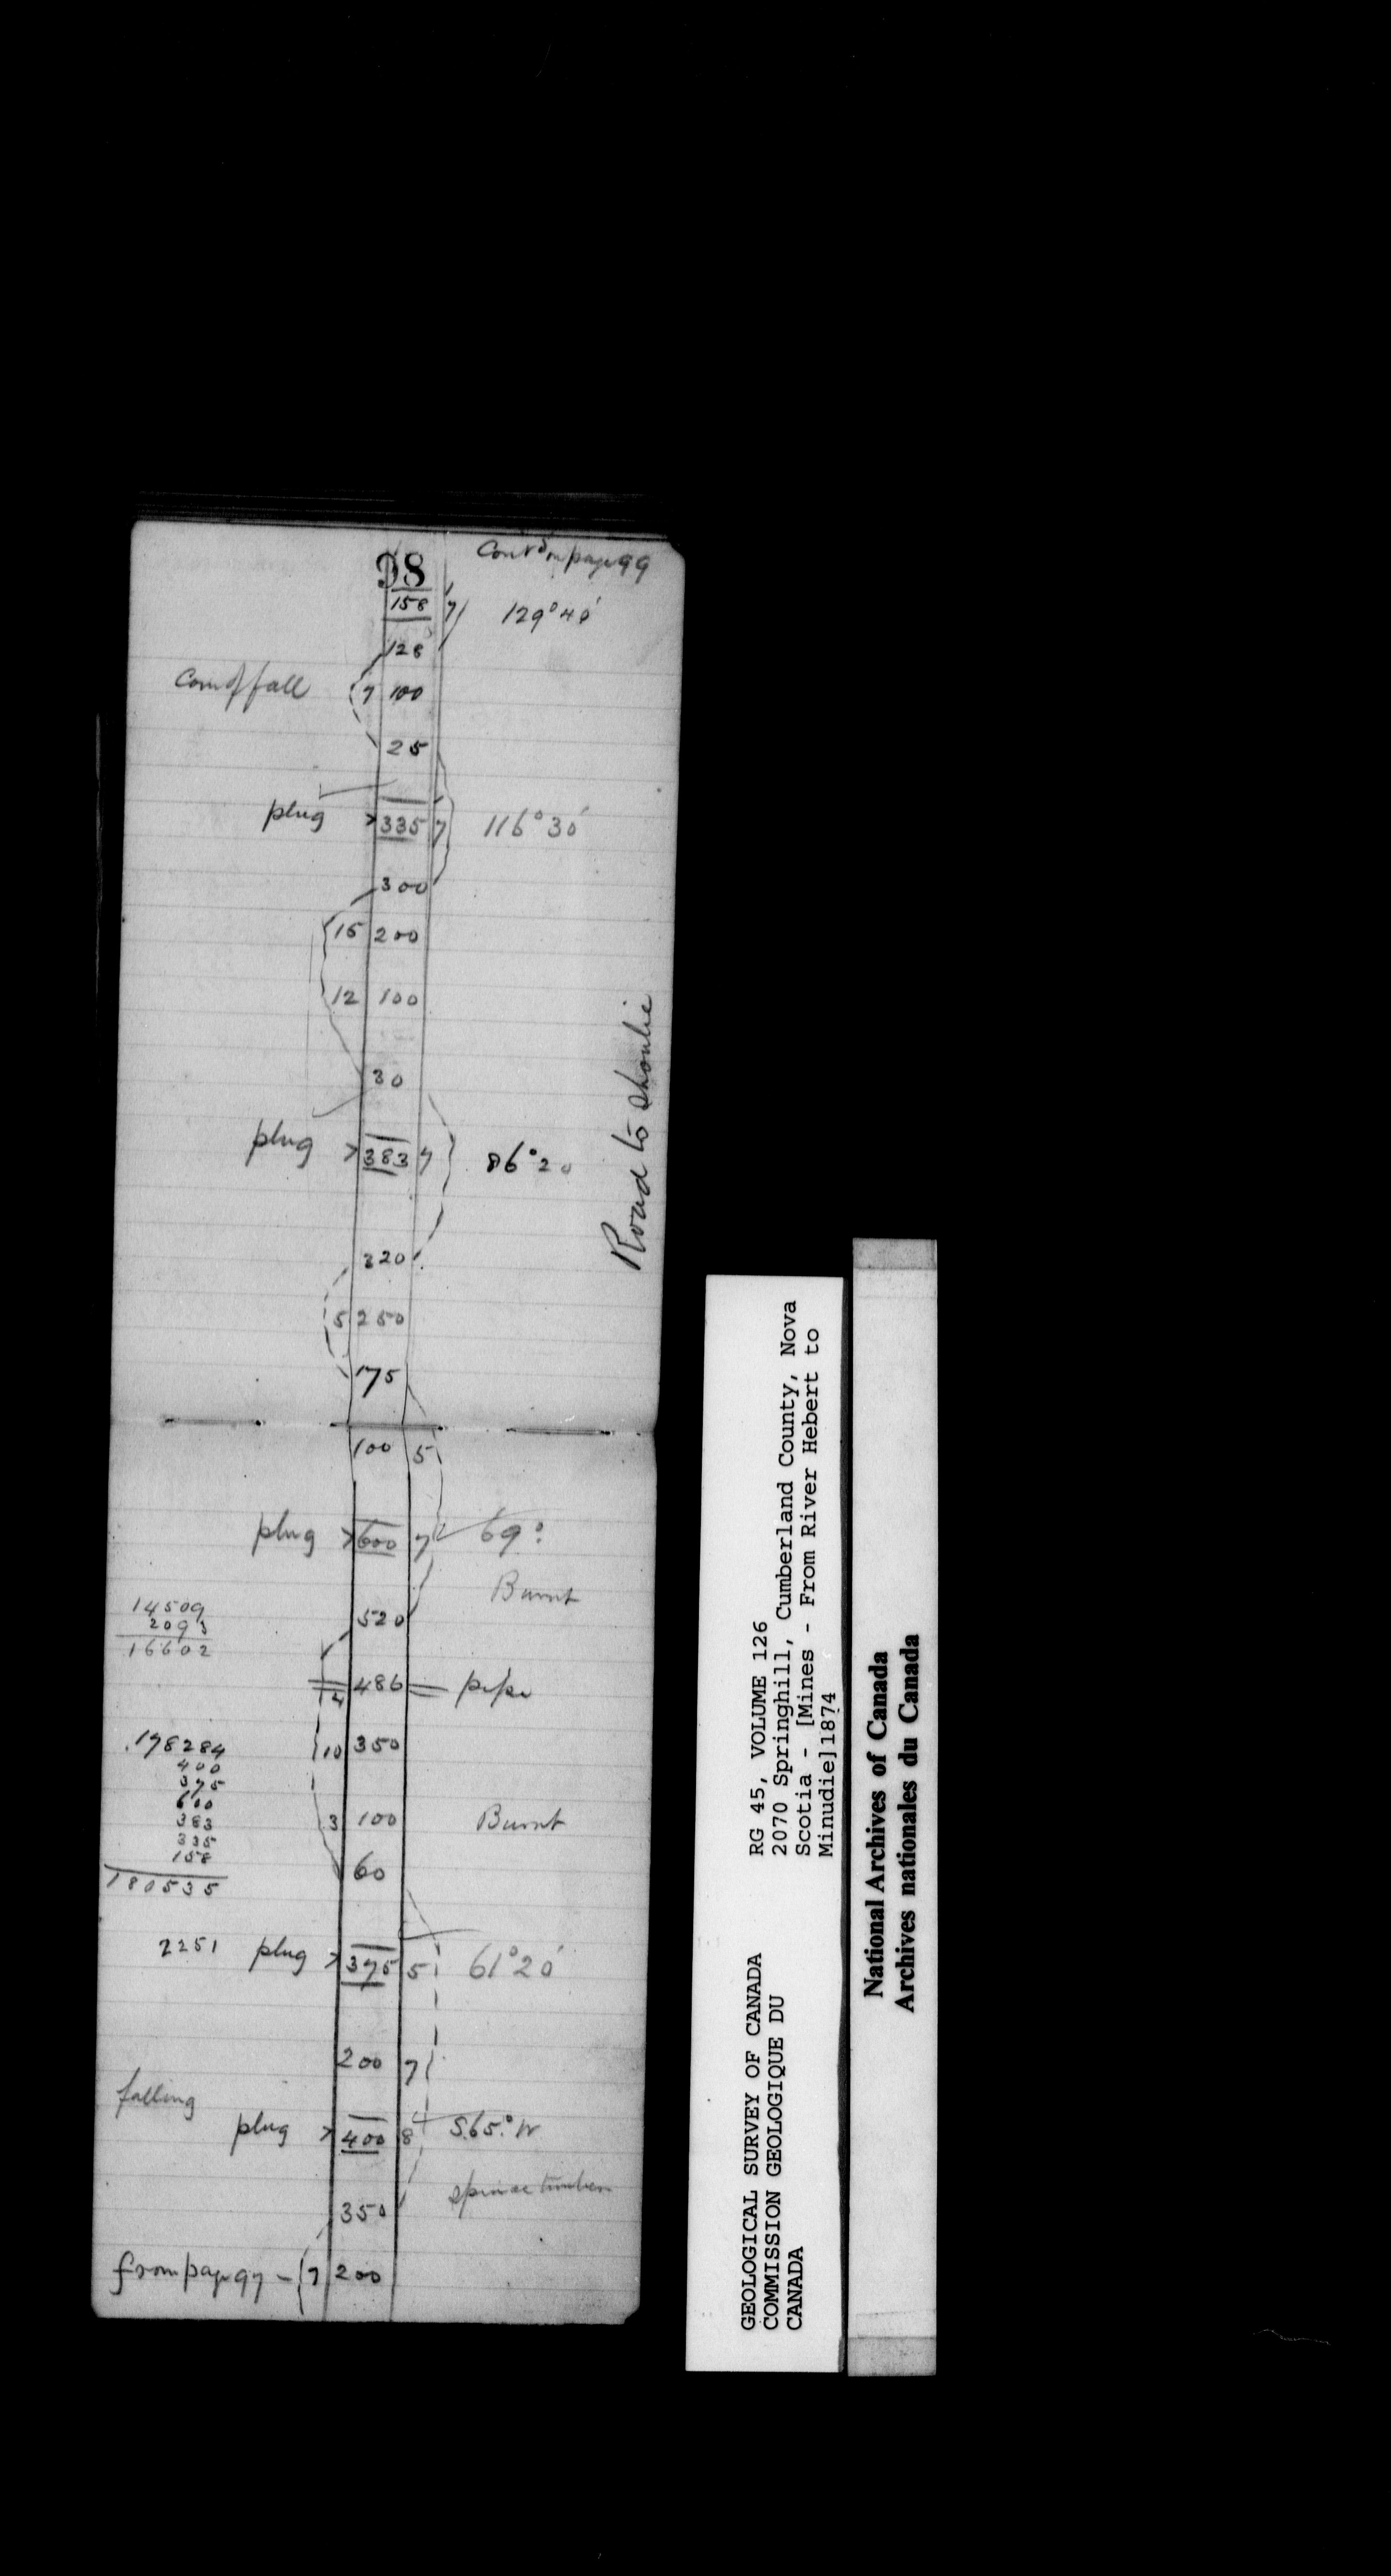 98
Cont'd on page 99
158 7 129°40'
128
7 100
25
plug > 335 7 116°30'
300
15 200
12 100
30
plug > 383 7 86°20
Road to Shoulie
320
5 250
175
100 5
plug > 600 7 69°
Burnt
14509
2093
16602
520
4 486 pipe
178284
400
375
600
383
335
158
180535
2251
10 350
3 100 Burnt
60
plug > 375 5 61°20'
200 7
falling
plug > 400 8 S.65°.W
350 spruce timber
from page 97 - 7 200
RG 45, VOLUME 126
2070 Springhill, Cumberland County, Nova
Scotia - [Mines - From River Hebert to
Minudie]1874
GEOLOGICAL SURVEY OF CANADA
COMMISSION GEOLOGIQUE DU
CANADA
National Archives of Canada
Archives nationales du Canada